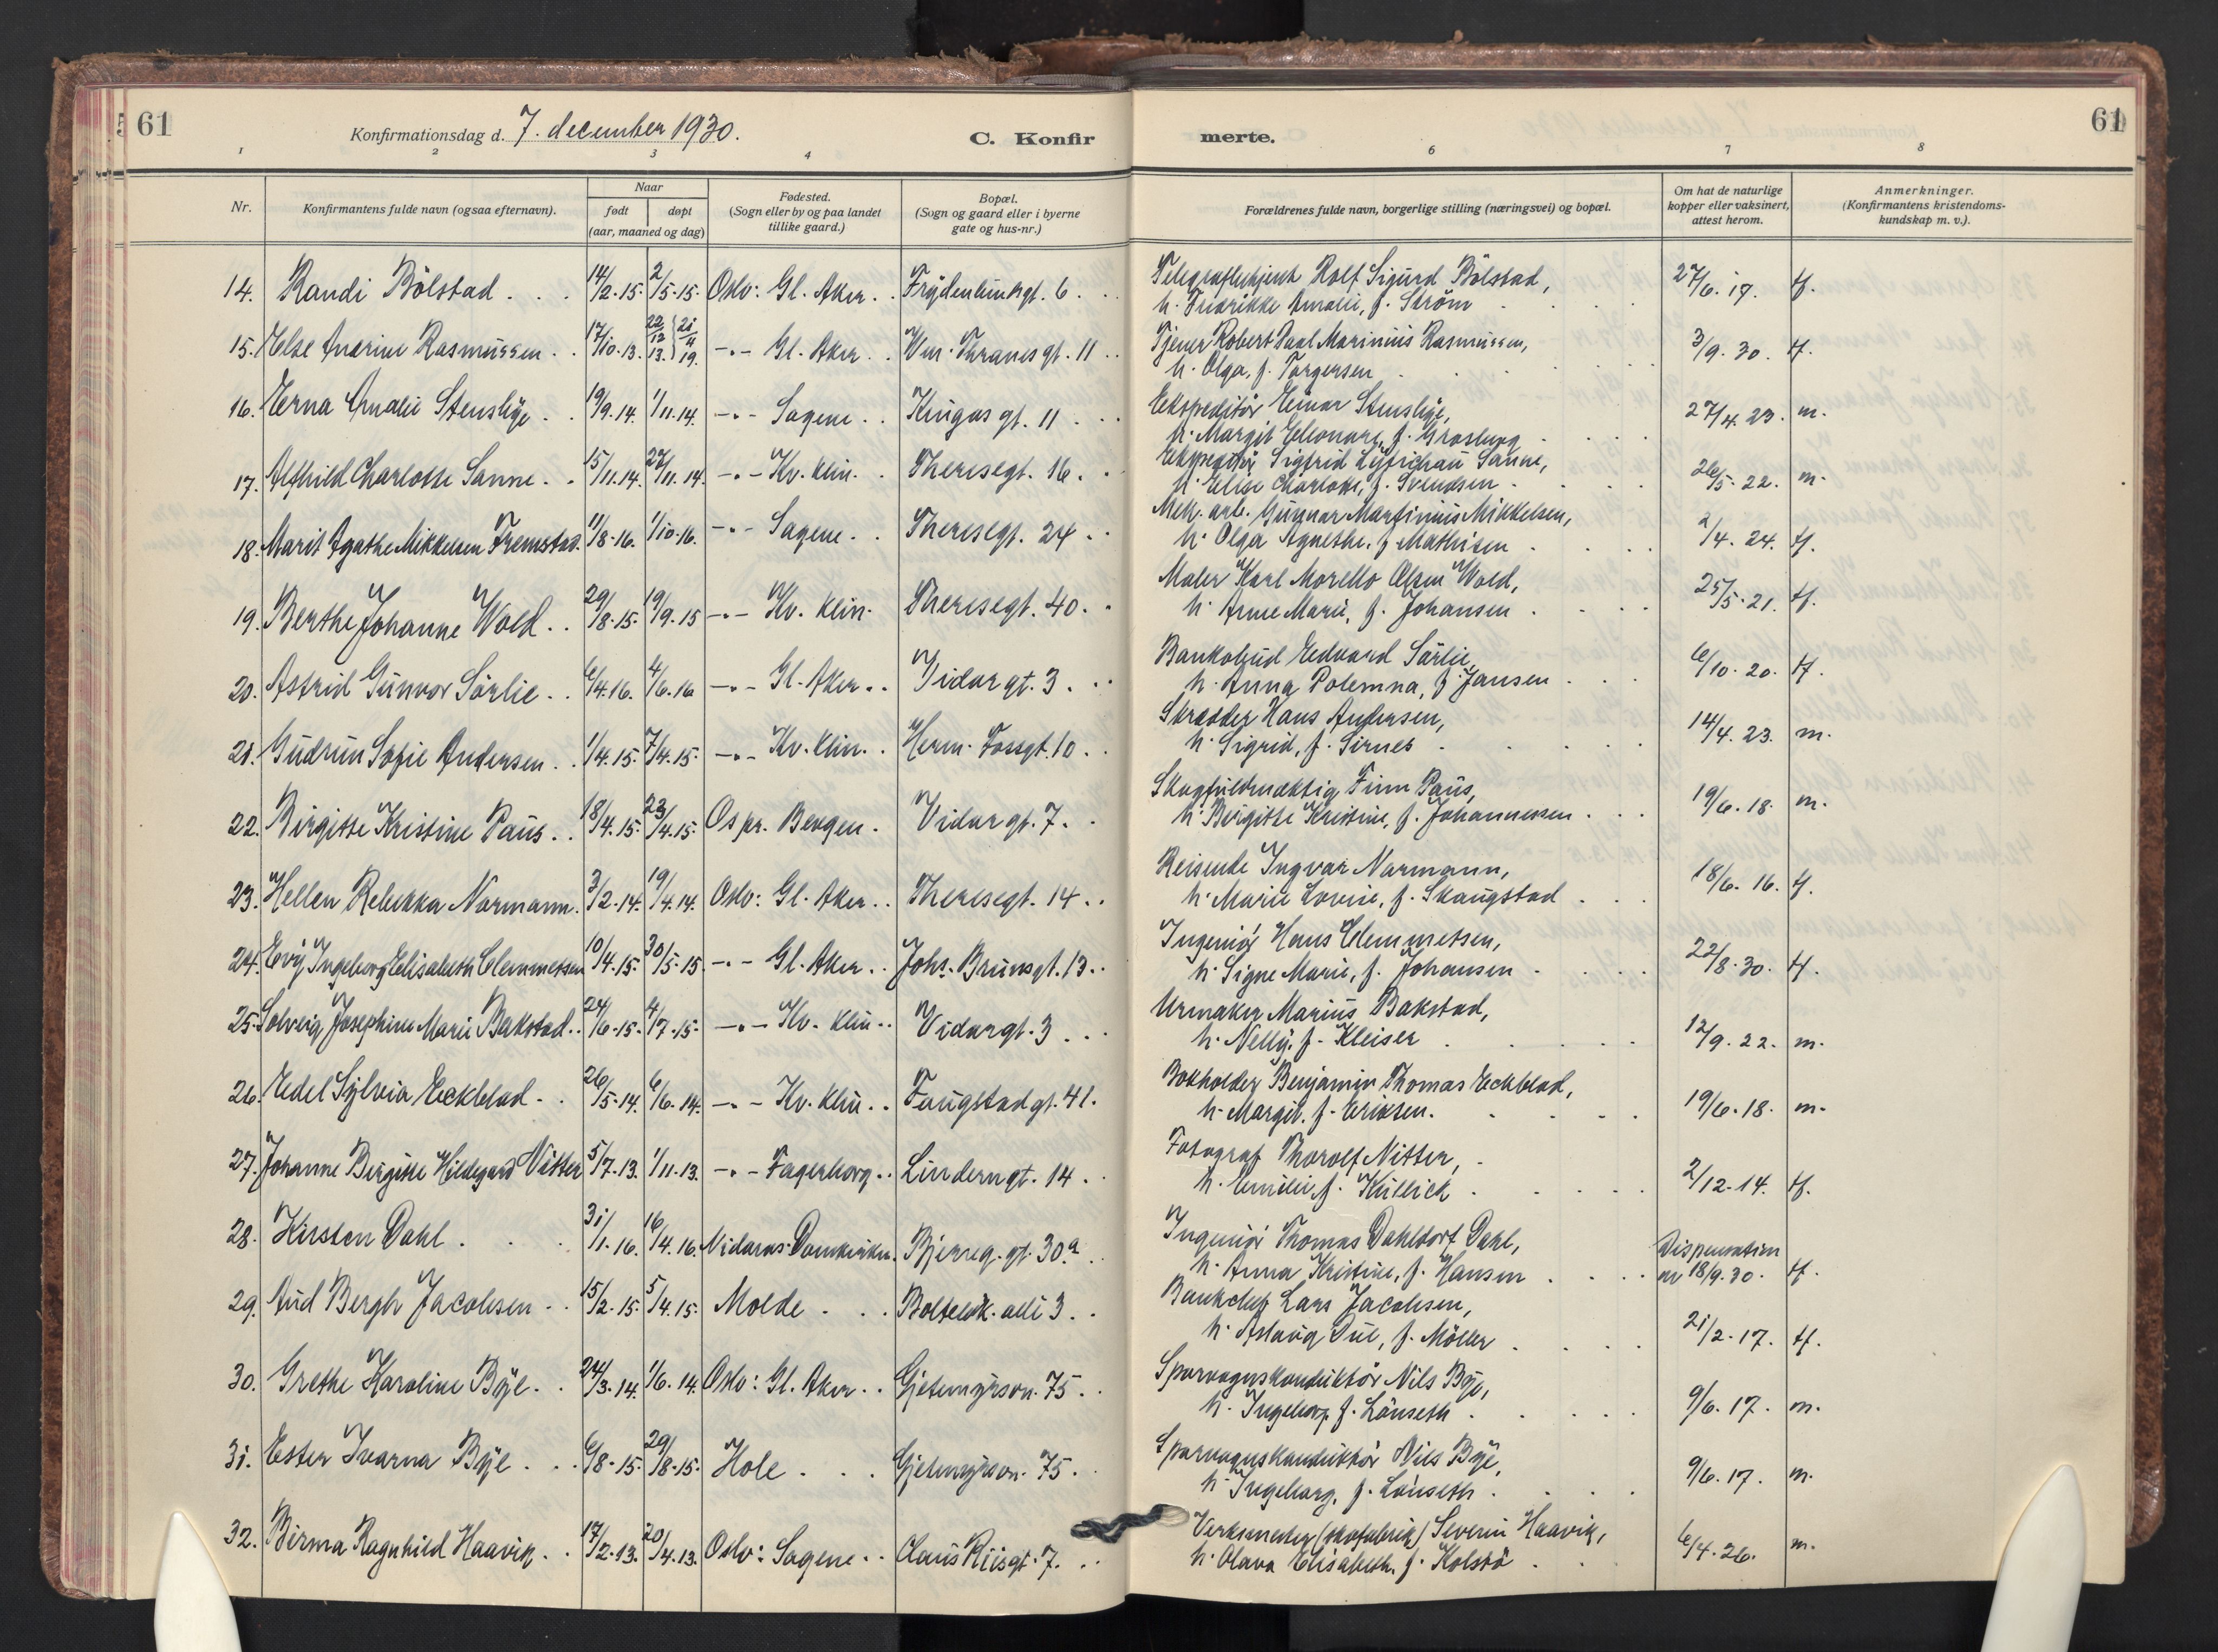 61
Konfirmationsdag d. 7. december 1930.
C. Konfir
merte.
61
1 2 3 4 6 7 8
Nr.
Konfirmantens fulde navn (ogsaa efternavn).
Naar
født
døpt
(aar, maaned og dag)
Fødested.
(Sogn eller by og paa landet
tillike gaard.)
Bopæl.
(Sogn og gaard eller i byerne
gate og hus-nr.)
Forældrenes fulde navn, borgerlige stilling (næringsvei) og bopæl.
Om hat de naturlige
kopper eller vaksinert,
attest herom.
Anmerkninger.
(Konfirmantens kristendoms-
kundskap m. v.).
14. Randi Bölstad . . . 14/2.15. 2/5.15. Oslo: Gl. Aker . . Frydenlundsgt. 6. . Rolf Sigurd Bölstad, 27/6.17. tf.
h. Fredrikke Amalie, f. Ström
15. Else Andrine Rasmussen . . 17/10.13. 22/12 13. } 21/4 19. -"- Gl. Aker . . Wm. Thranesgt. 11 . . Tjener Robert Paul Marinius Rasmussen, 3/9.30. tf.
h. Olga, f. Torgersen
16. Erna Amalie Stenslye . . 19/9.14. 1/11.14. -"- Sagene . . Kingosgt. 11 . . Ekspeditör Einar Stenslye, 27/4.23. m.
h. Margit Eleonore, f. Grosberg
17. Alfhild Charlotte Sanne . . 15/11.14. 27/11.14. -"- Kv. klin. . Theresegt. 16. . Ekspeditör Sigfrid Sanne, 26/5.22. m.
h. Elise Charlotte, f. Svendsen
18. Marit Agathe Mikkelsen Fremstad. 11/8.16. 1/10.16. -"- Sagene . . Theresegt. 24 . . Mek. arb. Gunnar Martinius Mikkelsen, 2/4.24. tf.
h. Olga Agnethe, f. Mathisen
19. Berthe Johanne Wold . . 29/8.15. 19/9.15 -"- Kv. klin. Theresegt. 40. . Maler Karl Morello Olsen Wold, 25/5.21. tf.
h. Anne Marie, f. Johansen
20. Astrid Gunvor Sörlie . . 6/4.16. 4/6.16 -"- Gl. Aker . . Vidarsgt. 3 . . Bankobud Edvard Sörlie, 6/10.20. tf.
h. Anna Polemna, f. Jansen
21. Gudrun Sofie Andersen . . 1/4.15. 7/4.15. -"- Kv. klin. . Herm. Fossgt. 10 . . Skredder Hans Andersen, 14/4.23. m.
h. Sigrid, f. Sirnes
22. Birgitte Kristine Paus . . 18/4.15. 23/4.15. Os pr. Bergen . Vidarsgt. 7. . Skogfuldmektig Finn Paus, 19/6.18. m.
h. Birgitte Kristine, f. Johannessen
23. Hellen Rebekka Normann. 3/2.14. 19/4.14. Oslo: Gl. Aker . . Theresegt. 14 . . Reisende Ingvar Normann, 18/6.16. tf.
h. Marie Lovise, f. Skaugstad
24. Evy Ingeborg Elisabeth Clemmetsen 10/4.15. 30/5.15. -"- Gl. Aker . . Johs. Brunsgt. 13. . Ingeniör Hans Clemmetsen, 22/8.30. tf.
h. Signe Marie, f. Johansen
25. Solveig Josephine Marie Bakstad . . 24/6.15. 4/7.15. -"- Kv. klin . . Vidarsgt. 3 . . Urmaker Marius Bakstad, 12/9.22. m.
h. Nelly, f. Kleiser
26. Edel Sylvia Eckblad . . 26/5.14. 6/6.14. -"- Kv. klin . . Faugstadgt. 41. Bokholder Benjamin Thomas Eckblad, 19/6.18. m.
h. Margit, f. Eriksen.
27. Johanne Birgitte Hildegard Nitter 5/7.13. 1/11.13. -"- Fagerborg . . Linderngt. 14 . . Fotograf Thorolf Nitter, 2/12.14. tf.
h. Emilie, f. Küllich
28. Kirsten Dahl . . . 31/1.16. 16/4.16. Nidaros Domkirke . Bjerreg. gt. 30a . . Ingeniör Thomas Dahldorf Dahl, Dispensation
h. Anna Kristine, f. Hansen av 18/9.30. tf.
29. Aud Bergh Jacobsen . . 15/2.15. 5/4.15. Molde . . . Bolteløk. allé 3 . . Bankchef Lars Jacobsen, 21/2.17. tf.
h. Aslaug Due, f. Möller
30. Grethe Karoline Bye . . 24/3.14. 1/6.14. Oslo: Gl. Aker . . Gjetemyrsvn. 75 . . Sporvognskonduktör Nils Bye, 9/6.17. m.
h. Ingeborg, f. Lönseth
31. Ester Ivarna Bye . . . 6/8.15. 29/8.15. Hole . . . Gjetemyrsvn. 75 . Sporvognskonduktör Nils Bye, 9/6.17. m.
h. Ingeborg, f. Lönseth
32. Birma Ragnhild Haavik . . 17/2.13. 20/4.13. Oslo: Sagene . . Claus Riisgt. 7. . . Verksmester (skofabrik) Severin Haavik, 6/4.26. m.
h. Olava Elisabeth, f. Kolstö